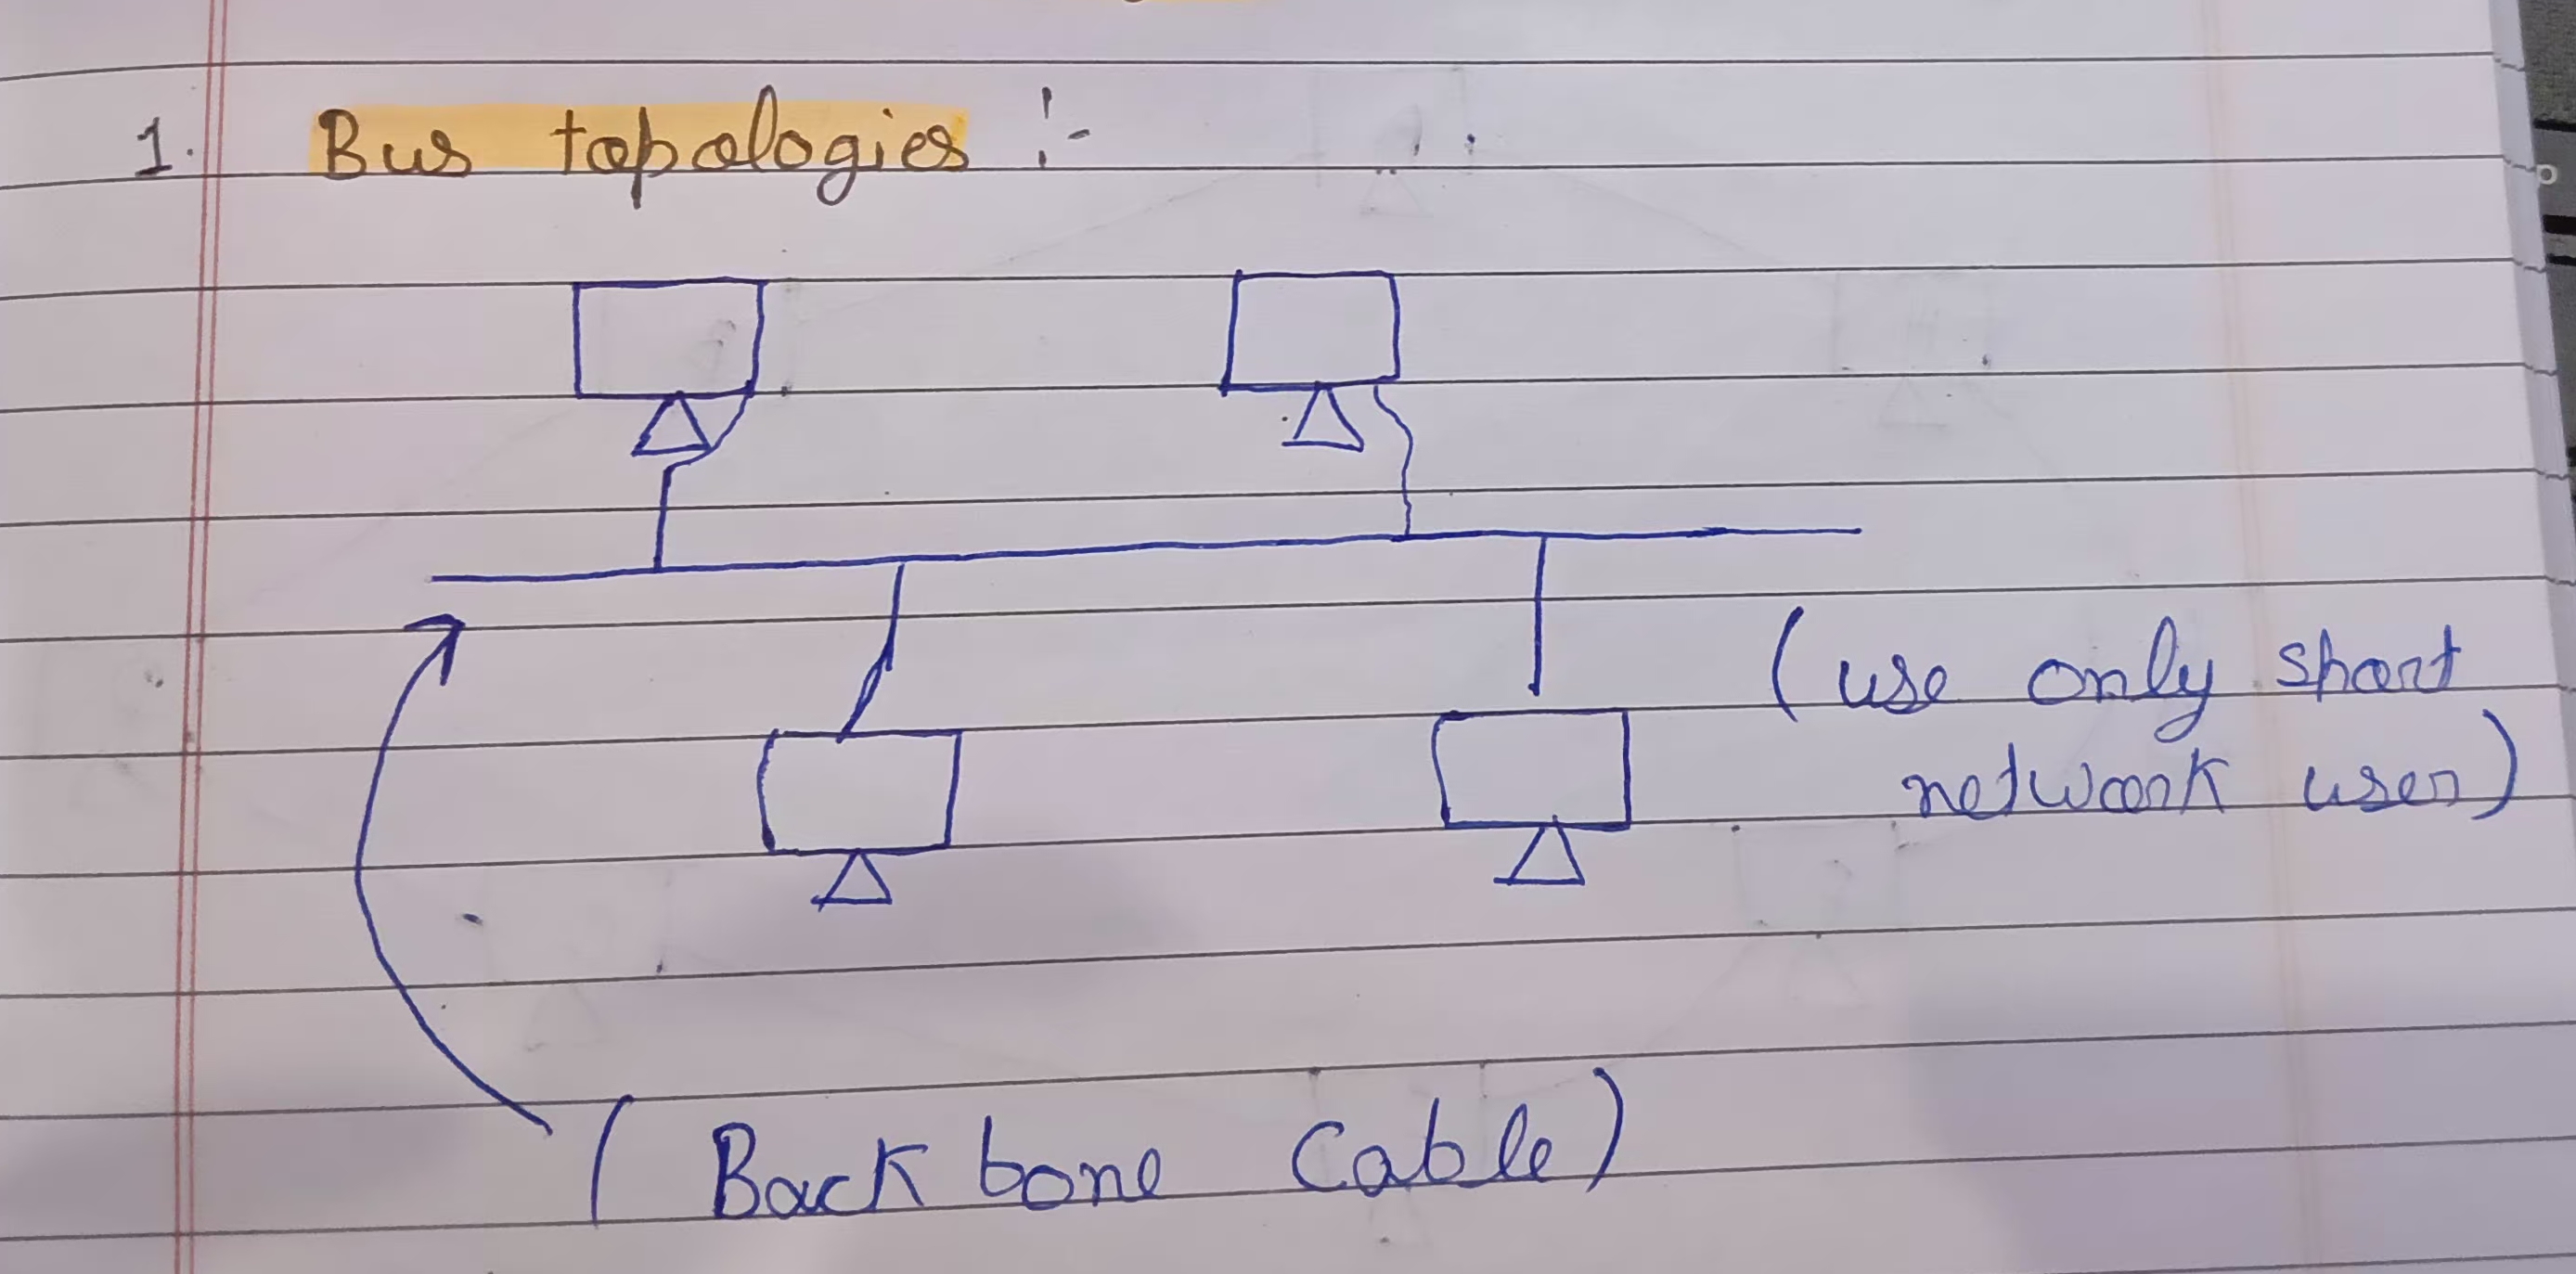 1. Bus topologies :-
(use only short
network user)
(Back bone Cable)